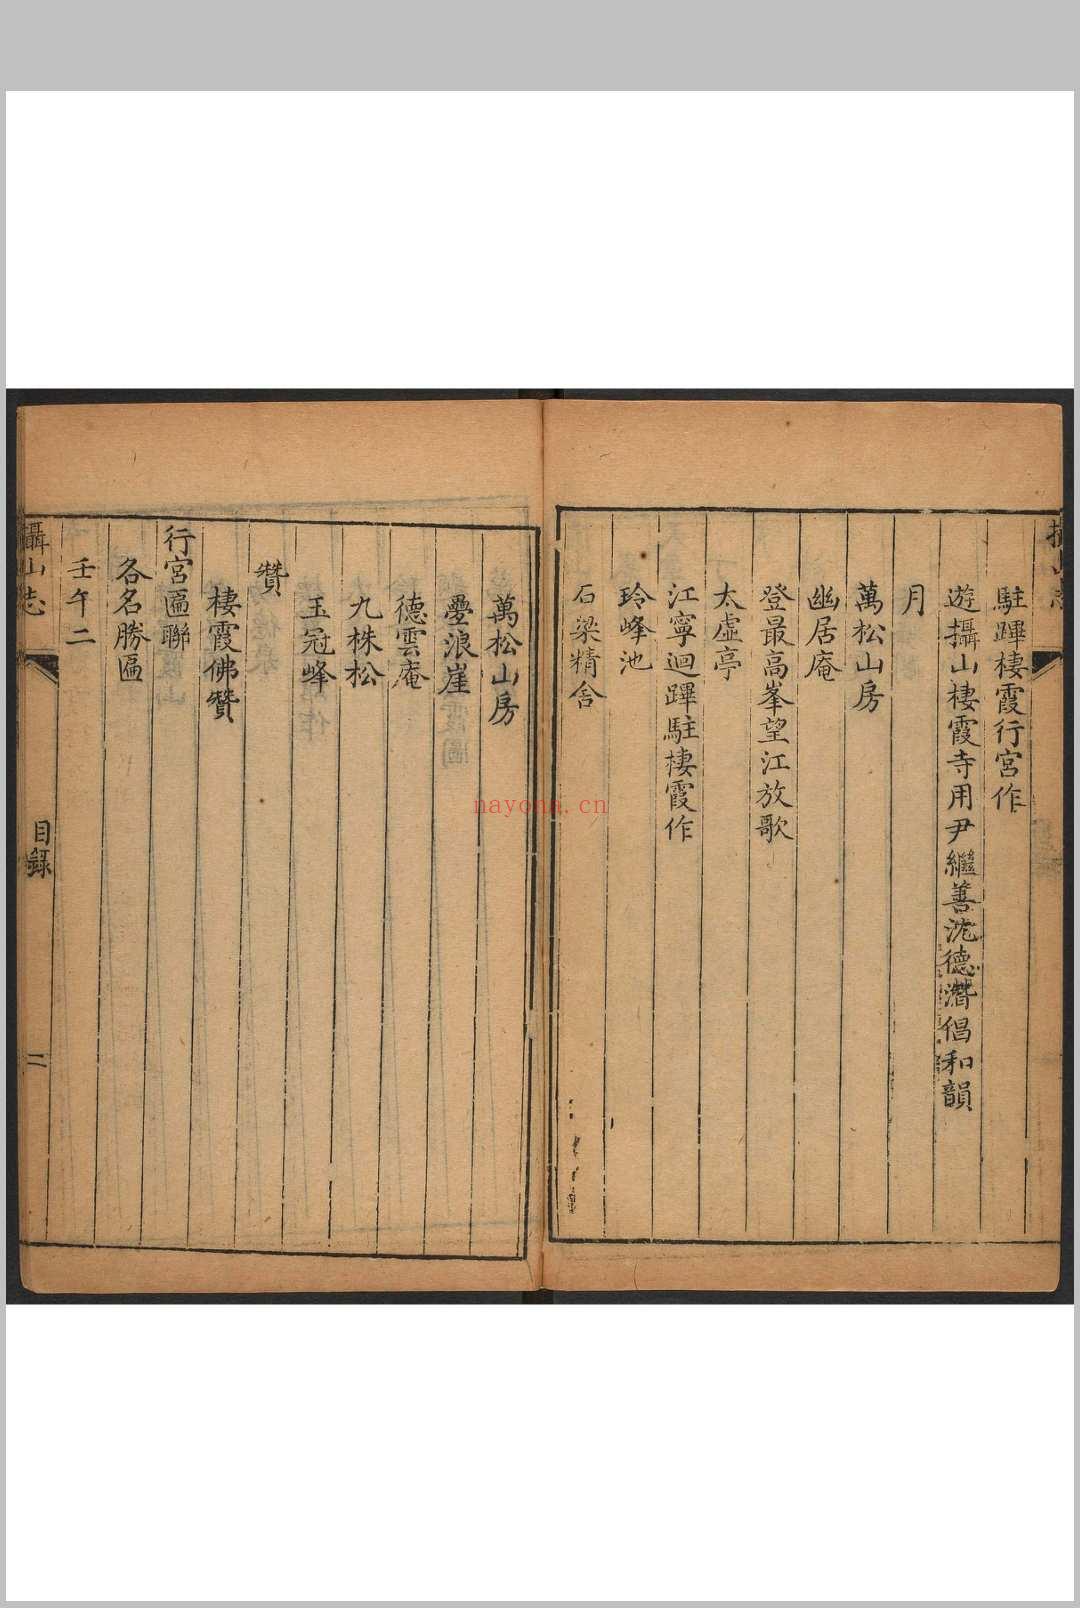 駐蹕棲霞行宮作
遊攝山棲霞寺用尹繼善沈德潛倡和韻
月
萬松山房
幽居庵
登最高峯望江放歌
太虛亭
江寧迴蹕駐棲霞作
玲峰池
石梁精舍
萬松山房
疊浪崖
德雲庵
九株松
玉冠峰
贊
棲霞佛贊
行宮匾聯
各名勝匾
壬午二
攝山志
目錄
二
nayona.cn